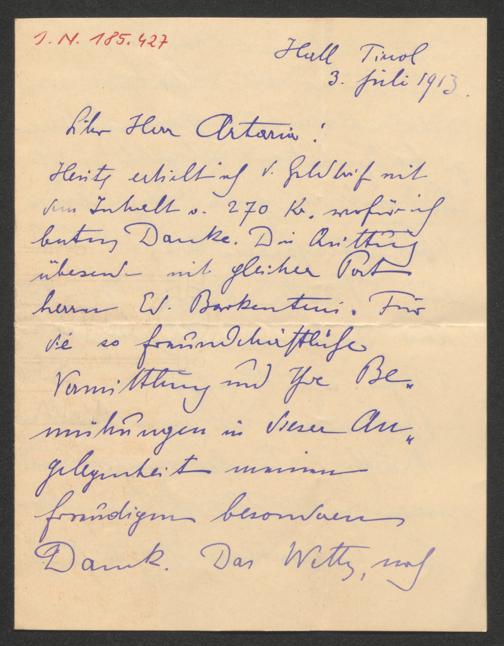 I. N. 185.427
Hall Tirol
3. Juli 1913.
Lieber Herr Artaria!
Heute erhielt ich d. Geldbrief mit
dem Inhalt v. 270 Kr. wofür ich
bestens Danke. Die Quittung
übersende mit gleicher Post
Herrn Ed. Barkentini. Für
die so freundschaftliche
Vermittlung und Ihre Be„
mühungen in dieser An„
gelegenheit meinen
freudigen besonderen
Dank. Das Wetter, noch